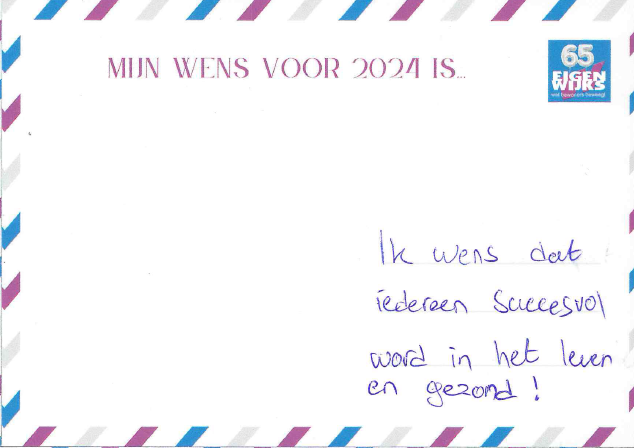 MIJN WENS VOOR 2024 IS...
65
EIGEN
WIJKS
Ik wens dat
iedereen succesvol
word in het leven
en gezond!